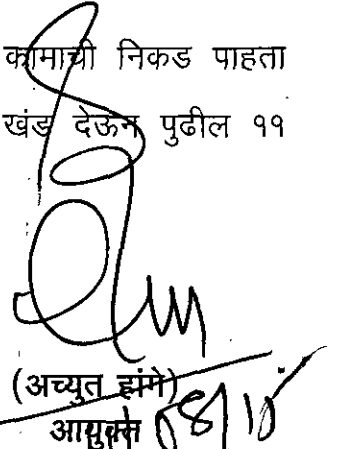 कामाची निकड पाहता
खंड देऊन पुढील ११
(अच्युत हांगे)
आयुक्त